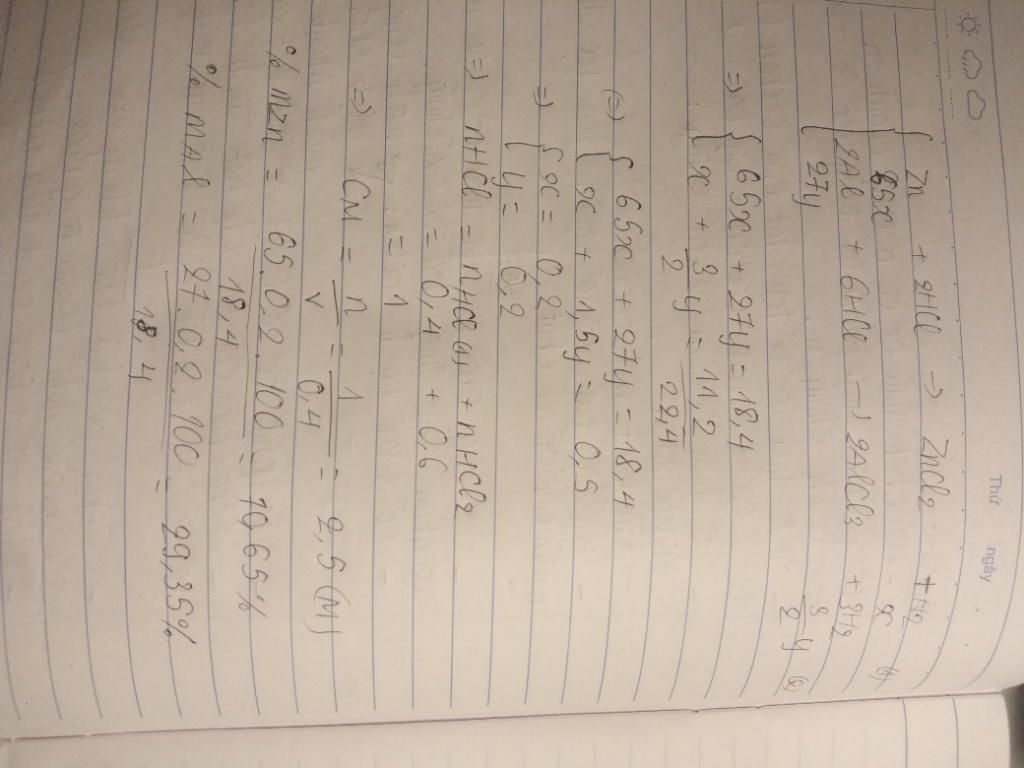 Thứ ngày
Zn + 2HCl → ZnCl2 + H2
65x x (1)
2Al + 6HCl → 2AlCl3 + 3H2
27y 3/2 y (2)
=> { 65x + 27y = 18,4
x + 3/2 y = 11,2/22,4
(=) { 65x + 27y = 18,4
x + 1,5y = 0,5
=> { x = 0,2
y = 0,2
=> nHCl = nHCl(1) + nHCl2
= 0,4 + 0,6
= 1
=> CM = n/V = 1/0,4 = 2,5 (M)
% mZn = 65.0.2.100/18,4 = 70,65%
% mAl = 27.0.2.100/18,4 = 29,35%